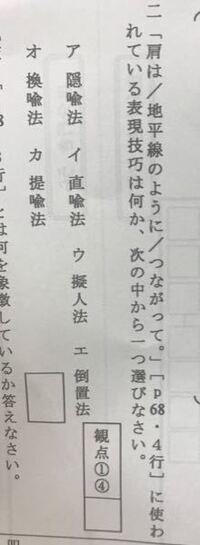 二「肩は／地平線のように／つながって。」［p68・4行］に使わ
れている表現技巧は何か、次の中から一つ選びなさい。
観点①④
ア 隠喩法 イ 直喩法 ウ 擬人法 エ 倒置法
オ 換喩法 カ 提喩法
行］とは何を象徴しているか答えなさい。